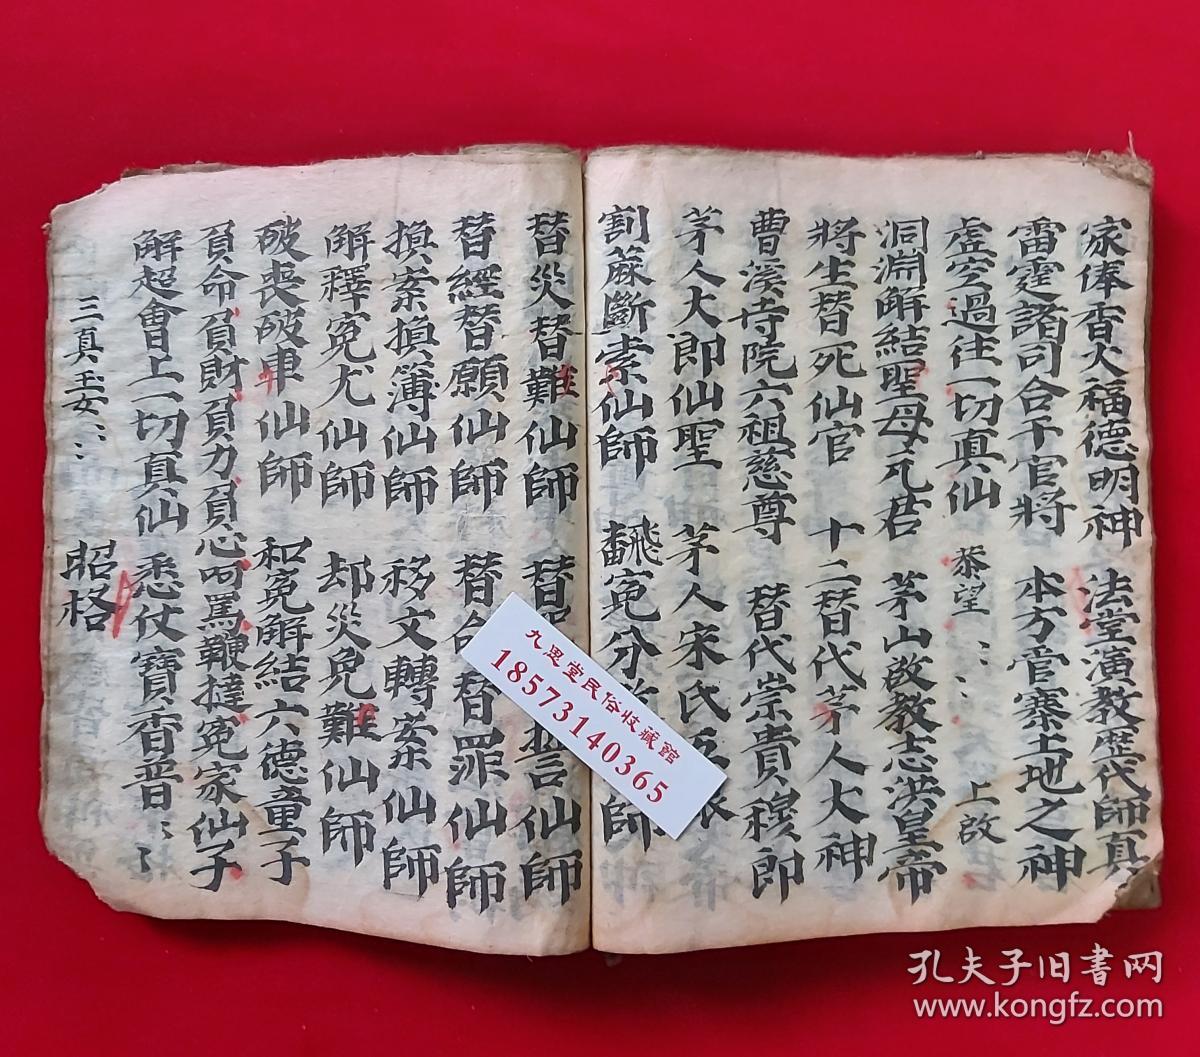 家俸香火福德明神　法堂演教歷代師真
雷霆諸司合干官將　本方管寨土地之神
虛空過往一切真仙　恭望：：上啟
洞淵解結聖母元君　茅山啟教志洪皇帝
將生替死仙官　十二替代茅人大神
曹溪寺院六祖慈尊　替代崇貴穆郎
茅人大郎仙聖　茅人宋氏
割蔴斷索仙師　飜寃分　師
替災替難仙師　替　言仙師
替經替願仙師　替　替罪仙師
損案損簿仙師　移文轉案仙師
解釋寃尤仙師　却災免難仙師
破喪破車仙師　和寃解結六德童子
負命負財負力負心呵罵鞭撻寃家仙子
解超會上一切真仙　悉仗寶香普：：
三真玉女：：　昭格
九思堂民俗收藏館
18573140365
孔夫子旧書网
www.kongfz.com